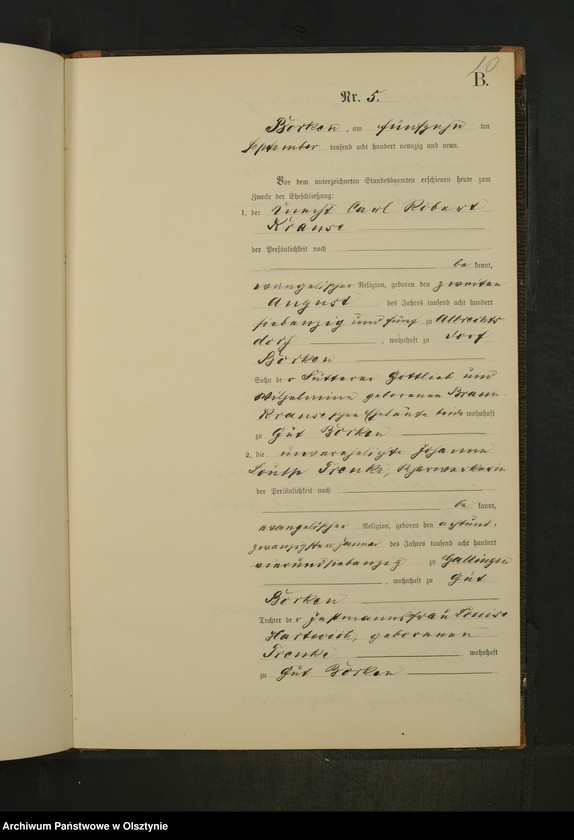 10
B.
Nr. 5.
Borken, am fünfzehn ten
September tausend acht hundert neunzig und neun.
Vor dem unterzeichneten Standesbeamten erschienen heute zum
Zwecke der Eheschließung:
1. der Knecht Carl Robert
Krause
der Persönlichkeit nach
be kannt,
evangelischer Religion, geboren den zweiten
August des Jahres tausend acht hundert
siebenzig und fünf zu Albrechts
dorf, wohnhaft zu Dorf
Borken
Sohn der Fütterer Gottlieb und
Wilhelmine geborenen Braun
Krauseschen Eheleute beide wohnhaft
zu Gut Borken
2. die unverehelichte Johanne
Louise Trenke, Scharwerkerin
der Persönlichkeit nach
be kannt,
evangelischer Religion, geboren den achtund-
zwanzigsten Januar des Jahres tausend acht hundert
vierundsiebenzig zu Gallingen
, wohnhaft zu Gut
Borken
Tochter der Instmannsfrau Louise
Hartwich, geborenen
Trenke wohnhaft
zu Gut Borken
Archiwum Państwowe w Olsztynie